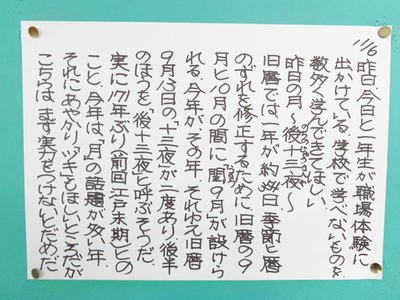 11/6 昨日今日と一年生が職場体験に
出かけている。学校で学べないものを
数多く学んできてほしい。
昨日の月〜後十三夜〜
のちのじゅうさんや
旧暦では一年が約354日。季節と暦
のずれを修正するために旧暦の9
月と10月の間に「閏9月」が設けら
うるう
れる。今年が、その年。それゆえ旧暦
9月13日の、十三夜が二度あり、後半
のほうを「後十三夜」と呼ぶそうだ。
実に171年ぶり(前回江戸末期)との
こと。今年は、「月」の話題が多い年。
それにあやかり「ツキ」もほしいところだが
こちらは、まず実力をつけないとだめだ。